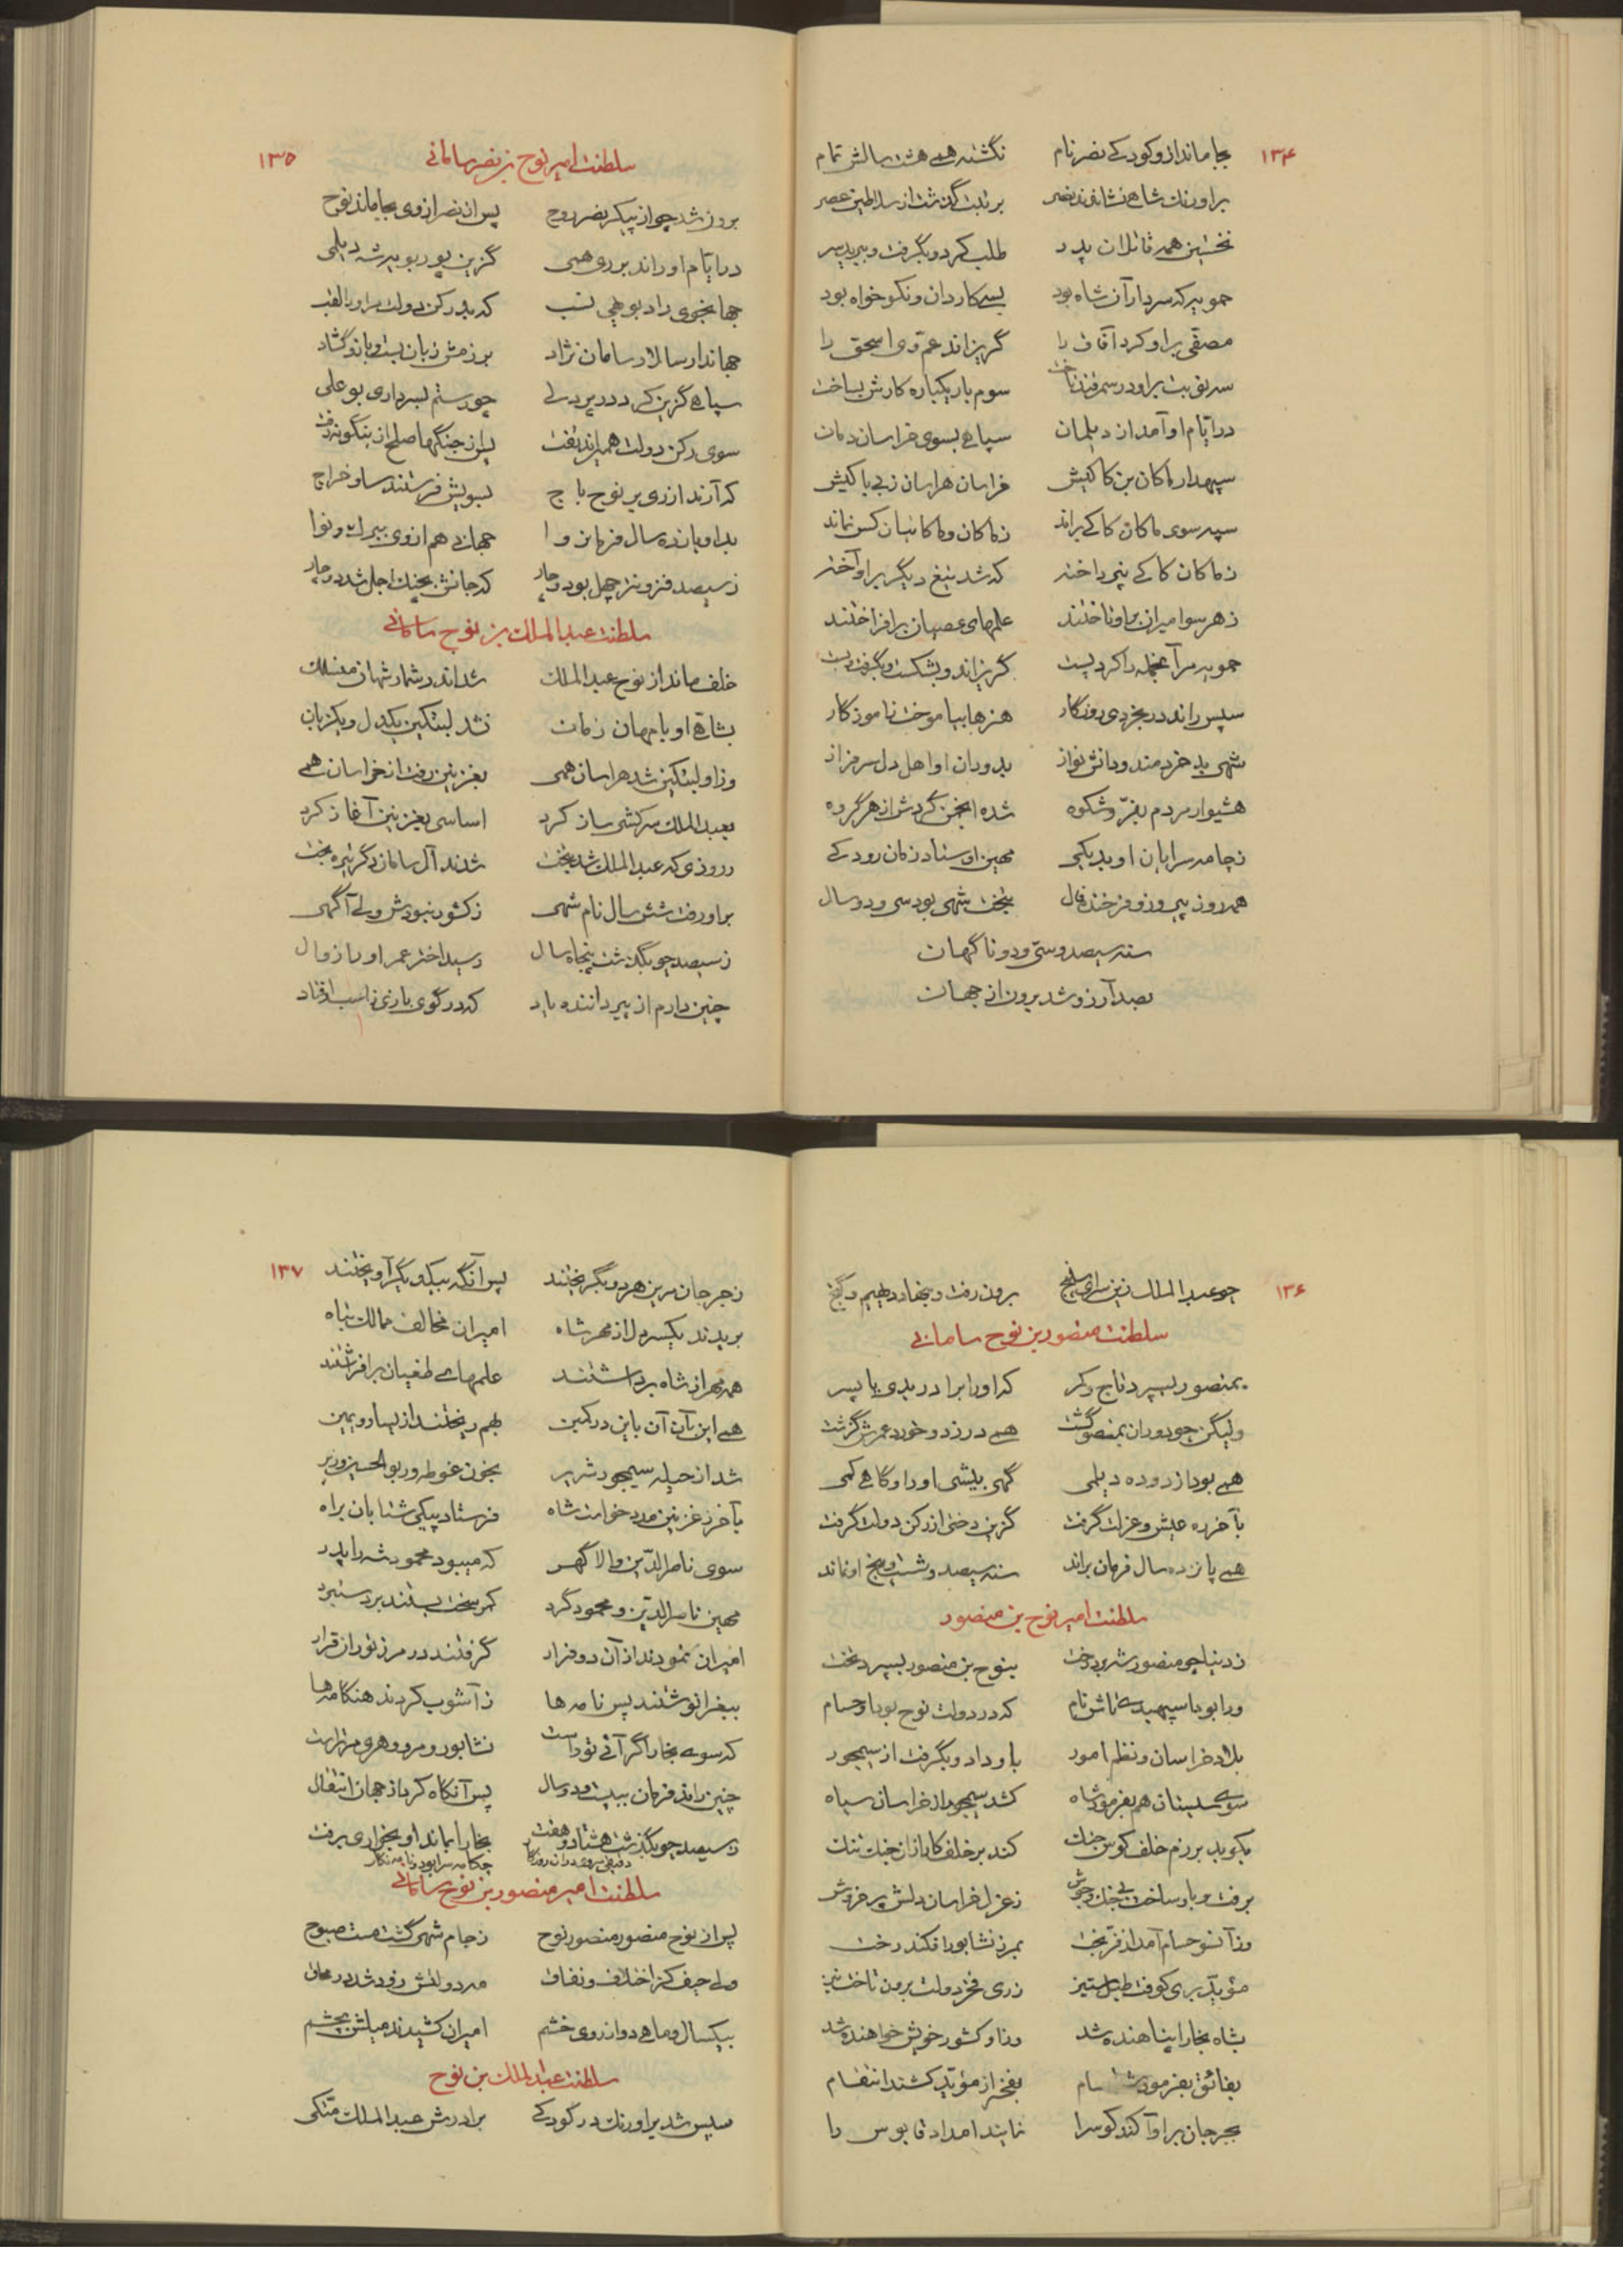 ۱۳۴
بجا ماند از و کودکے نصر نام نگشته همی هشت سالش تمام
بر اورنك شاهی نشاندند نصر برتبت گذشت از سلاطین عصر
نخستین همه قاتلان پدر طلب کرد و بگرفت و ببرید سر
حمویه که سردار آن شاه بود بسی کاردان و نکو خواه بود
مصفی بر او کرد آفاق را گریزاند عم وی اسحق را
سه نوبت بر او در سمرقند تاخت سوم بار یکباره کارش بساخت
در ایام او آمد از دیلمان سپاهی بسوی خراسان دمان
سپهدار ماکان بن کاکیش خراسان هراسان ز بی باکیش
سپه سوی ماکان کاکی براند ز ماکان و ماکانیان کس نماند
ز ماکان کاکے پرداخته که شد تیغ دیگر بر او آخته
ز هر سو امیران بر او تاختند علمهای عصیان برافراختند
حمویه مر آنجمله را کرد پست گریزاند و بشکست و بگرفت و بست
سپس راند در بخردی روزگار هنرها بیاموخت ز آموزگار
شهی بد خردمند و دانش نواز بدوران او اهل دل سرفراز
هشیوار مردم بفر و شکوه شده انجمن گردش از هر گروه
ز چامه سرایان او بد یکی مهین اوستاد زمان رودکے
همه روز پیروز و فرخنده فال بتخت شهی بود سی و دو سال
سنه سیصد و سی و دو ناگهان
بصد آرزو شد برون از جهان
۱۳۵
سلطنت امیر نوح بن نصر سامانی
برون شد چو از پیکر نصر روح پس از نصر از وی بجا ماند نوح
در ایام او راند بر ری همی گزین پور بویه شه دیلمی
جهانجوی راد بویهی نسب که بد رکن دولت مر او را لقب
جهاندار سالار سامان نژاد برزمش زبان بست و بازو گشاد
سپاهی گزین کرد در پردلی چو رستم بسرداری بوعلی
سوی رکن دولت همیراند تفت پس از جنگها صلح از ینگونه رفت
که آرند از ری بر نوح باج بسویش فرستند ساو و خراج
بد او یازده سال فرمان روا جهانی هم از وی ببرگ و نوا
ز سیصد فزونتر چهل بود و چار که جانش بچنگ اجل شد دوچار
سلطنت عبدالملك بن نوح سامانی
خلف ماند از نوح عبدالملك شد اندر شمار شهان منسلك
بشاهی او با مهان زمان نشد لبتکین یکدل و یکزبان
وز او لبتکین شد هراسان همی بغزنین رفت از خراسان همی
بعبدالملك سرکشی ساز کرد اساسی بغزنین آغاز کرد
در روزی که عبدالملك شد بتخت شدند آل سامان دگر تیره بخت
بر او رفت شش سال نام شهی ز کشور نبودش ولی آگهی
ز سیصد چو بگذشت پنجاه سال رسید اختر عمر او را زوال
چنین دارم از پیر داننده یاد که در گوی بازی ز اسب اوفتاد
۱۳۶
چو عبدالملك زین سرای سپنج برون رفت و بنهاد دیهیم و گنج
سلطنت منصور بن نوح سامانی
بمنصور بسپرد تاج و کمر که او را برادر بدی یا پسر
ولیکن چو دوران بمنصور گشت همی در زد و خورد عمرش گذشت
همی بود از دوده دیلمی گهی بیشی او را و گاهی کمی
بآخر ره عیش و عزلت گرفت گزین دختی از رکن دولت گرفت
همی پانزده سال فرمان براند سنه سیصد و شصت و پنج او نماند
سلطنت امیر نوح بن منصور
ز دنیا چو منصور شه برد رخت بنوح بن منصور بسپرد تخت
ورا بود اسپهبدی تاش نام که در دولت نوح بود او حسام
بلاد خراسان و نظم امور باو داد و بگرفت از سیمجور
سوی سیستان هم بفرمود شاه کشد سیمجور از خراسان سپاه
بکوبد برزم خلف کوس جنك کند بر خلف کار از جنك تنك
برفت و باو ساخت بی جنك و جوش ز عزل خراسان دلش پر خروش
وز آنسو حسام آمد از فر بخت بمرز نشابور افکند رخت
مؤید بری کوفت طبل ستیز ز ری فخر دولت برون تاخت تیز
بشاه بخارا پناهنده شد وز او کشور خویش خواهنده شد
بفائق بفرمود شه حسام بفخر از مؤید کشند انتقام
بجرجان بر او آکند کوس را نمایند امداد قابوس را
۱۳۷
ز جرجان مر این هر دو بگریختند پس آنگه بیکدیگر آویختند
بریدند یکسر دل از مهر شاه امیران مخالف ممالك تباه
همه مهر از شاه برداشتند علمهای طغیان برافراشتند
همی این بآن آن باین در کمین بهم ریختند از یسار و یمین
شد از حیله سیمجور شریر بخون غوطه ور بوالحسین وزیر
بآخر ز غزنین مدد خواست شاه فرستاد پیکی شتابان براه
سوی ناصرالدین والا گهر که میبود محمود شه را پدر
مهین ناصرالدین و محمود گرد کمر سخت بستند بر دستبرد
امیران نمودند از آن دو فرار گرفتند در مرز توران قرار
ببغرا نوشتند پس نامه ها ز آشوب کردند هنگامه ها
که سوی بخارا گر آئی تو راست نشابور و مرو و هری مر تراست
چنین راند فرمان ببیست و دو سال پس آنگاه کرد از جهان انتقال
ز سیصد چو بگذشت هشتاد و هفت بخارا بماند او بخواری برفت
دقیقی سرود در آن روزگار چکامه سرا بود و نامه نگار
سلطنت امیر منصور بن نوح سامانی
پس از نوح منصور منصور نوح ز جام شهی گشت مست صبوح
ولی حیف کز اختلاف و نفاق مه دولتش زود شد در محاق
بیکسال و ماهی دو از روی خشم امیران کشیدند میلش بچشم
سلطنت عبدالملك بن نوح
سپس شد بر اورنك در کودکے برادرش عبدالملك متکی